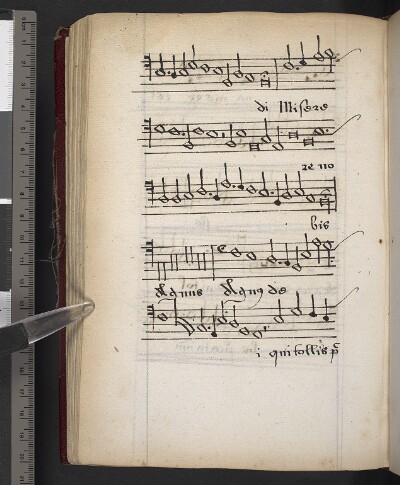 di Misere
re no
bis
Agnus Agnus de
i qui tollis p̄